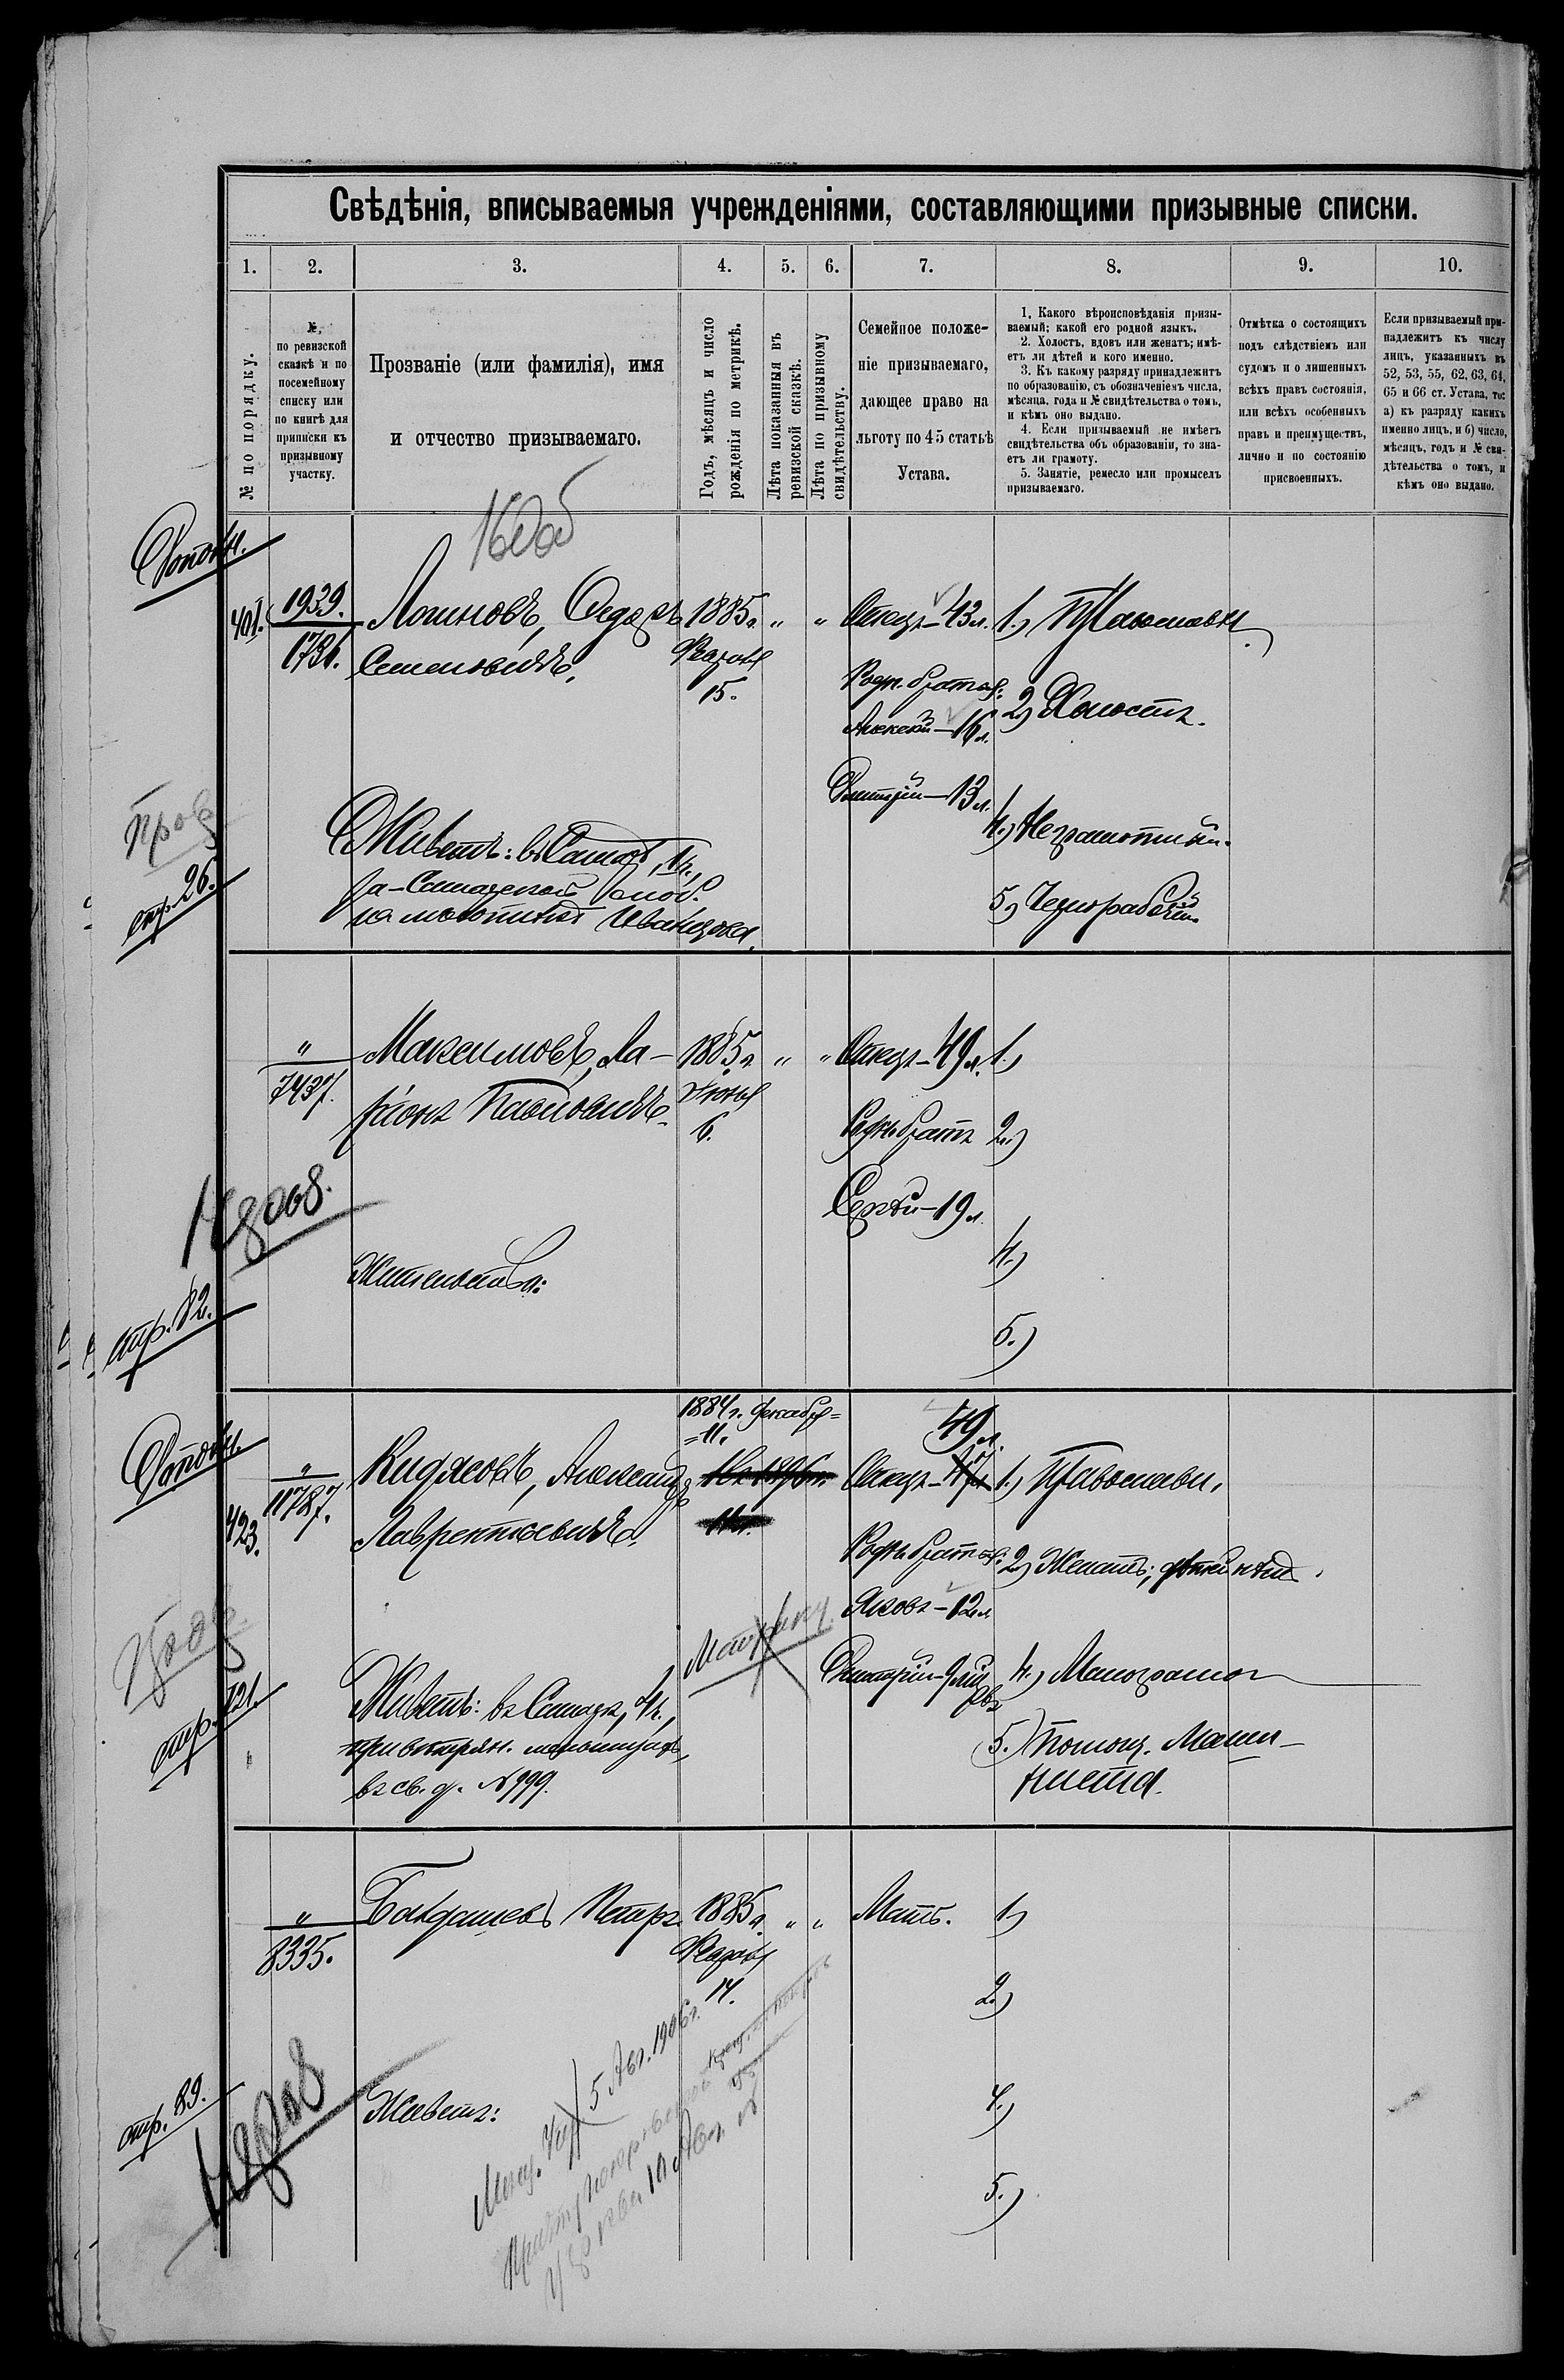 Свѣдѣнія, вписываемыя учрежденіями, составляющими призывные списки.
1. 2. 3. 4. 5. 6. 7. 8. 9. 10.
№ по порядку.
№.
по ревизской
сказкѣ и по
посемейному
списку или
по книгѣ для
приписки къ
призывному
участку.
Прозваніе (или фамилія), имя
и отчество призываемаго.
Годъ, мѣсяцъ и число
рожденія по метрикѣ.
Лѣта показанныя въ
ревизской сказкѣ.
Лѣта по призывному
свидѣтельству.
Семейное положе-
ніе призываемаго,
дающее право на
льготу по 45 статьѣ
Устава.
1. Какого вѣроисповѣданія призы-
ваемый; какой его родной языкъ.
2. Холостъ, вдовъ или женатъ; имѣ-
етъ ли дѣтей и кого именно.
3. Къ какому разряду принадлежитъ
по образованію, съ обозначеніемъ числа,
мѣсяца, года и № свидѣтельства о томъ,
и кѣмъ оно выдано.
4. Если призываемый не имѣетъ
свидѣтельства объ образованіи, то зна-
етъ ли грамоту.
5. Занятіе, ремесло или промыселъ
призываемаго.
Отмѣтка о состоящихъ
подъ слѣдствіемъ или
судомъ и о лишенныхъ
всѣхъ правъ состоянія,
или всѣхъ особенныхъ
правъ и преимуществъ,
лично и по состоянію
присвоенныхъ.
Если призываемый при-
надлежитъ къ числу
лицъ, указанныхъ въ
52, 53, 55, 62, 63, 64,
65 и 66 ст. Устава, то:
а) къ разряду какихъ
именно лицъ, и б) число,
мѣсяцъ, годъ и № сви-
дѣтельства о томъ, и
кѣмъ оно выдано.
401.
1929.
1731.
Логиновъ, Ѳедоръ
Семеновичъ.
1885 г.
15.
" "
Отецъ - 43 л.
Родн. братья:
Алексѣй - 16 л.
Дмитрій - 13 л.
1.) Православн.
2.) Холостъ.
4.) Неграмотный.
5.) Чернорабочій.
Живетъ: въ Самарѣ, 1 ч.,
За-Самарской слоб.
Иванцова.
стр. 26.
"
7437.
Максимовъ, Ла-
ріонъ Павловичъ.
1885 г.
6.
" "
Отецъ - 49 л.
Родн. братъ
Сергѣй - 19 л.
1.)
2.)
4.)
5.)
Жительство:
стр. 82.
423.
"
11787.
Кидясовъ, Александръ
Лаврентьевичъ.
1884 г. Декабря
11.
49 л.
Отецъ - 47 л.
Родн. братья:
Яковъ - 12 л.
Дмитрій - 9 мѣ
1.) Православн.
2.) Женатъ; дѣтей нѣтъ.
4.) Малограмот
5.) Помощ. Маши-
ниста.
Метрику
Живетъ: въ Самарѣ, 4 ч.,
въ св. д. № 999.
стр. 121.
"
8335.
Петръ.
1885 г.
14.
" "
Мать.
1.)
2.)
4.)
5.)
Живетъ:
5 Авг. 1906 г.
стр. 89.